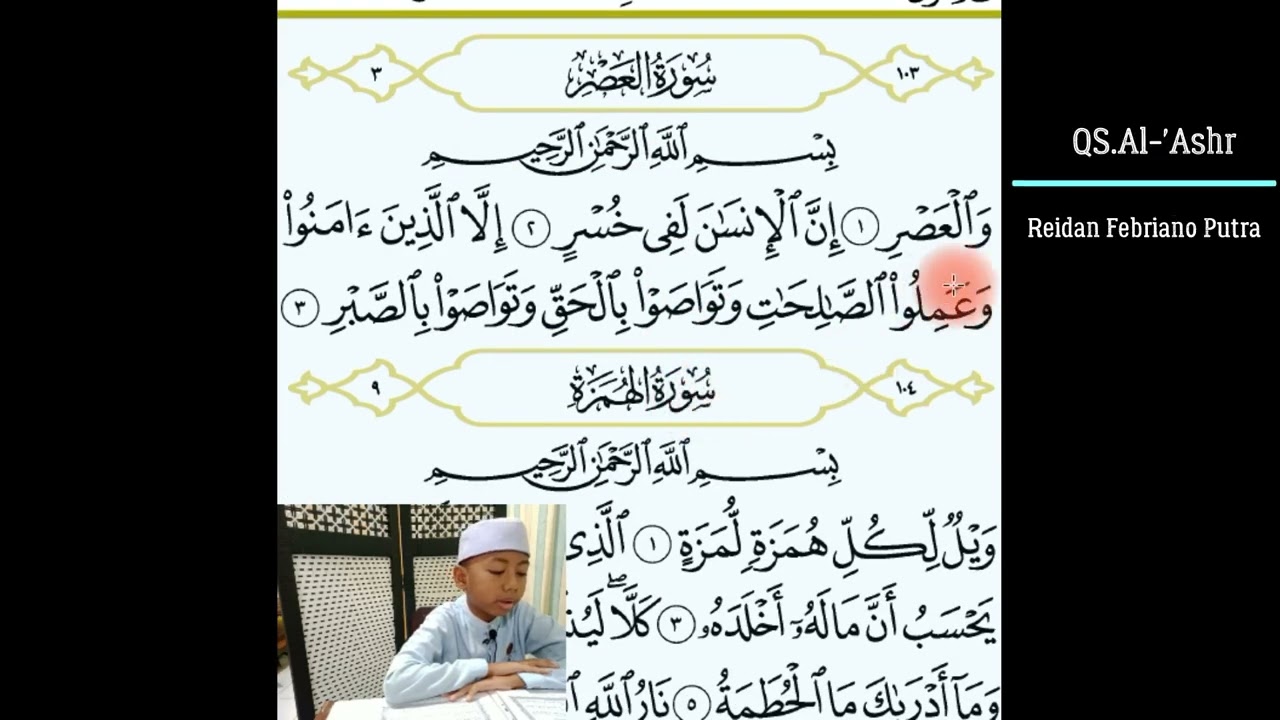 ١٠٣ سُورَةُ العَصْرِ ٣
بِسْمِ ٱللَّهِ ٱلرَّحْمَٰنِ ٱلرَّحِيمِ
وَٱلْعَصْرِ ١ إِنَّ ٱلْإِنسَٰنَ لَفِى خُسْرٍ ٢ إِلَّا ٱلَّذِينَ ءَامَنُوا۟
وَعَمِلُوا۟ ٱلصَّٰلِحَٰتِ وَتَوَاصَوْا۟ بِٱلْحَقِّ وَتَوَاصَوْا۟ بِٱلصَّبْرِ ٣
١٠٤ سُورَةُ الهُمَزَةِ ٩
بِسْمِ ٱللَّهِ ٱلرَّحْمَٰنِ ٱلرَّحِيمِ
وَيْلٌ لِّكُلِّ هُمَزَةٍ لُّمَزَةٍ ١ ٱلَّذِى
يَحْسَبُ أَنَّ مَالَهُۥٓ أَخْلَدَهُۥ ٣ كَلَّا ۖ
وَمَآ أَدْرَىٰكَ مَا ٱلْحُطَمَةُ ٥ نَارُ ٱللَّهِ
QS.Al-'Ashr
Reidan Febriano Putra